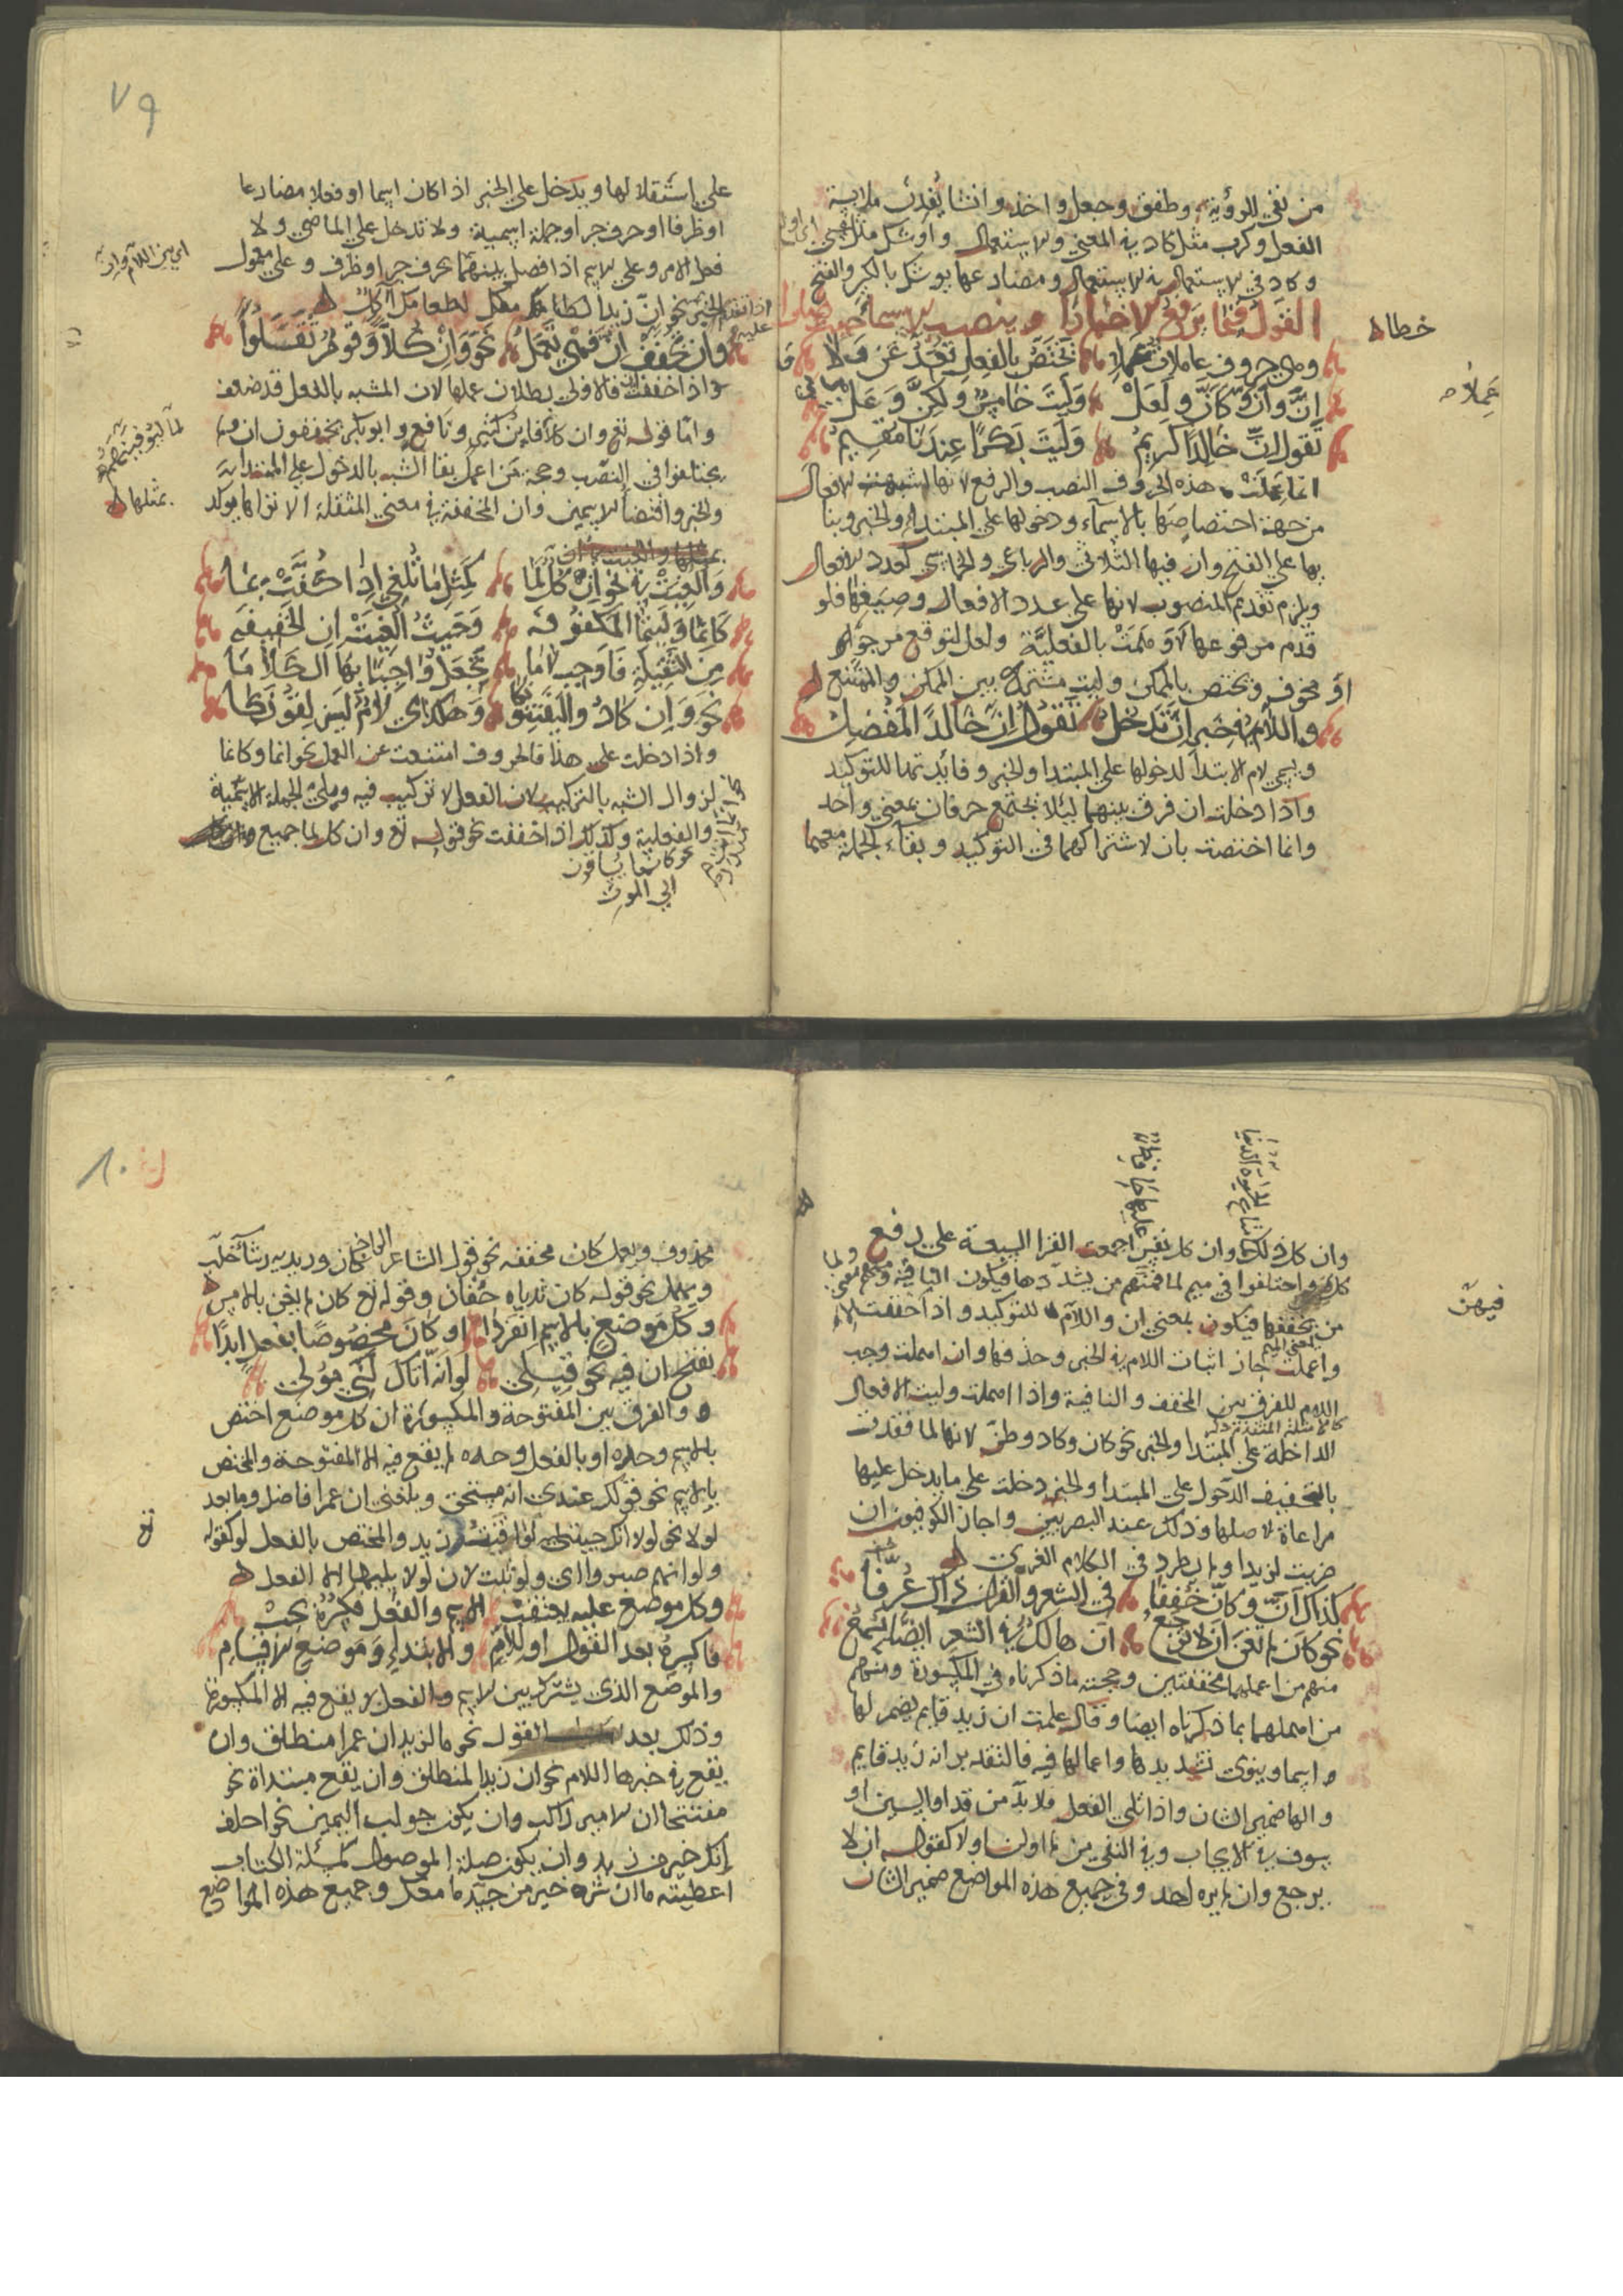 من نفي الرؤية وطفق وجعل واخذ وانشا يفدن ملابسة
الفعل وكرب مثل كاد في المعني والاستعمال واوشك مثل عسي
وكاد في الاستعمال ومضارعها يوشك بالكسر والفتح
القول فيما يرفع الاخبارا وينصب الاسما
خطا
وهي حروف عاملات عملا تختص بالفعل تعد عن ولا
عملا
ان وان وكان ولعل وليت خامس ولكن وعل
تقول ان خالدا كريم وليت بكرا عندنا مقيم
انما عملت هذه الحروف النصب والرفع لانها اشبهت الافعال
من جهة اختصاصها بالاسماء ودخولها علي المبتدا والخبر وبنا
يها علي الفتح وان فيها الثلاثي والرباعي والخماسي كعدد الافعال
ويلزم تقديم المنصوب لانها علي عدد الافعال وصيغها فلو
قدم مرفوعها لاوهمت بالفعلية ولعل لتوقع مرجو
او مخوف وتختص بالممكن وليت مشترك بين الممكن والممتنع
واللام في خبر ان تدخل تقول ان خالدا لمفضل
وهي لام الابتدا لدخولها علي المبتدا والخبر وفائدتها للتوكيد
واذا دخلت ان فرق بينهما ليلا يجتمع حرفان بمعني واحد
وانما اختصت بان لاشتراكهما في التوكيد وبقاء الجملة معهما
٧٩
علي استقلالها ويدخل علي الخبر اذا كان اسما او فعلا مضارعا
او ظرفا او حرف جر او جملة اسمية ولا تدخل علي الماضي ولا
فعل الامر وعلي الاسم اذا فصل بينهما بحرف جر او ظرف وعلي معمول
اي بين اللام وان
الخبر نحو ان زيدا لطعامك اكل
اذا تقدم عليه
وان تخفف ان فهي تعمل نحو وان كلا وقوم ثقلوا
واذا خففت فالاولي بطلان عملها لان المشبه بالفعل قد ضعف
واما قوله تع وان كلا فابن كثير ونافع وابو بكر يخففون ان ولم
لما ليوفينهم
يختلفوا في النصب وحجة من اعمل بقا الشبه بالدخول علي المبتدا
والخبر واقتضا الاسمين وان المخففة في معني المثقلة الا تراها يوكد
بمثلها
والغيت في نحو ان كل لما كمثل ما تلغي اذا كفت بما
كانما وليتما المكفوفه وحيث الغيت ان الخفيفه
من الثقيلة فاوجب لاما تجعل واجبا بها الكلاما
نحو وان كاد واليفتنوا وهكذي لام ليس لفوزكا
واذا دخلت علي هذا فالحروف امتنعت عن العمل نحو انما وكانما
لزوال الشبه بالتركيب لان الفعل لا تركيب فيه ويلي الجملة الاسمية
والفعلية وكذلك اذا خففت نحو قوله تع وان كل لما جميع
نحو كانما يساقون
الي الموت
وان كل ذلك وان كل نفس اجمعت القرا السبعة علي رفع
متاع الحيوة الدنيا
عليها حافظ
كل واختلفوا في ميم لما فمنهم من يشددها فيكون النافية ومنهم
من يخففها فيكون بمعني ان واللام للتوكيد واذا خففت
فيهن
واعملت جاز اثبات اللام في الخبر وحذفها وان اهملت وجب
اللام للفرق بين المخفف والنافية واذا اهملت وليت الافعال
كالامثلة المتقدمة
الداخلة علي المبتدا والخبر نحو كان وكاد وظن لانها لما فقدت
بالتخفيف الدخول علي المبتدا والخبر دخلت علي ما يدخل عليها
مراعاة لاصلها وذلك عند البصريين واجاز الكوفيون ان
ضربت لزيدا ولم يطرد في الكلام الغربي
كذاك ان وكان خففا في الشعر والقران ذاك عرفا
نحو كان لم تغن ان لا يرجع ان هالك في الشعر ايضا يسمع
منهم من اعملهما مخففتين وحجته ما ذكرناه في المكسورة ومنهم
من اهملهما بما ذكرناه ايضا وقال علمت ان زيد قايم يضمر لها
اسما وينوي تشديدها واعمالها فيه فالتقدير انه زيد قايم
والها ضمير الشان واذا تلي الفعل فلا بد من قد او السين او
سوف في الايجاب وفي النفي من لم او لن او لا كقوله ان لا
يرجع وان لم يره احد وفي جميع هذه المواضع ضمير الشان
٨٠
محذوف ويعمل كان مخففه نحو قول الشاعر كان وريديه رشا خلب
ويهمل نحو قوله كان ثدياه حقان وقوله تع كان لم يغن بالامس
وكل موضع بالاسم انفردا او كان مخصوصا بفعل ابدا
تفتح ان فيه نحو قيلي لو انه اتاك لي مولي
والفرق بين المفتوحة والمكسورة ان كل موضع اختص
بالاسم وحده او بالفعل وحده لم يقع فيه الا المفتوحة والمختص
بالاسم نحو قولك عندي انه مستحق وبلغني ان عمرا فاضل وما بعد
لولا نحو لولا انك جيتني زيد والمختص بالفعل لو كقوله
تع
ولو انهم صبروا اي ولو ثبت لان لو لا يليها الا الفعل
وكل موضع عليه يعتقب الاسم والفعل فكسره يجب
فاكسره بعد القول او للام والابتداء وموضع الاقسام
والموضع الذي يشترك بين الاسم والفعل لا يقع فيه الا المكسورة
وذلك بعد القول نحو قال زيد ان عمرا منطلق وان
يقع في خبرها اللام نحو ان زيدا لمنطلق وان يقع مبتداة نحو
مفتتحا ان الامير راكب وان يكون جواب اليمين نحو احلف
انك خير من زيد وان يكون صلة الموصول كمسئلة الكتاب
اعطيته ما ان شره خير من جيد ما معك وجميع هذه المواضع